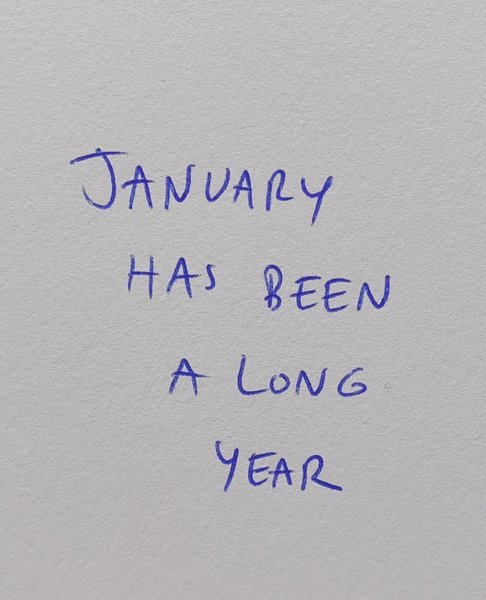 JANUARY
HAS BEEN
A LONG
YEAR